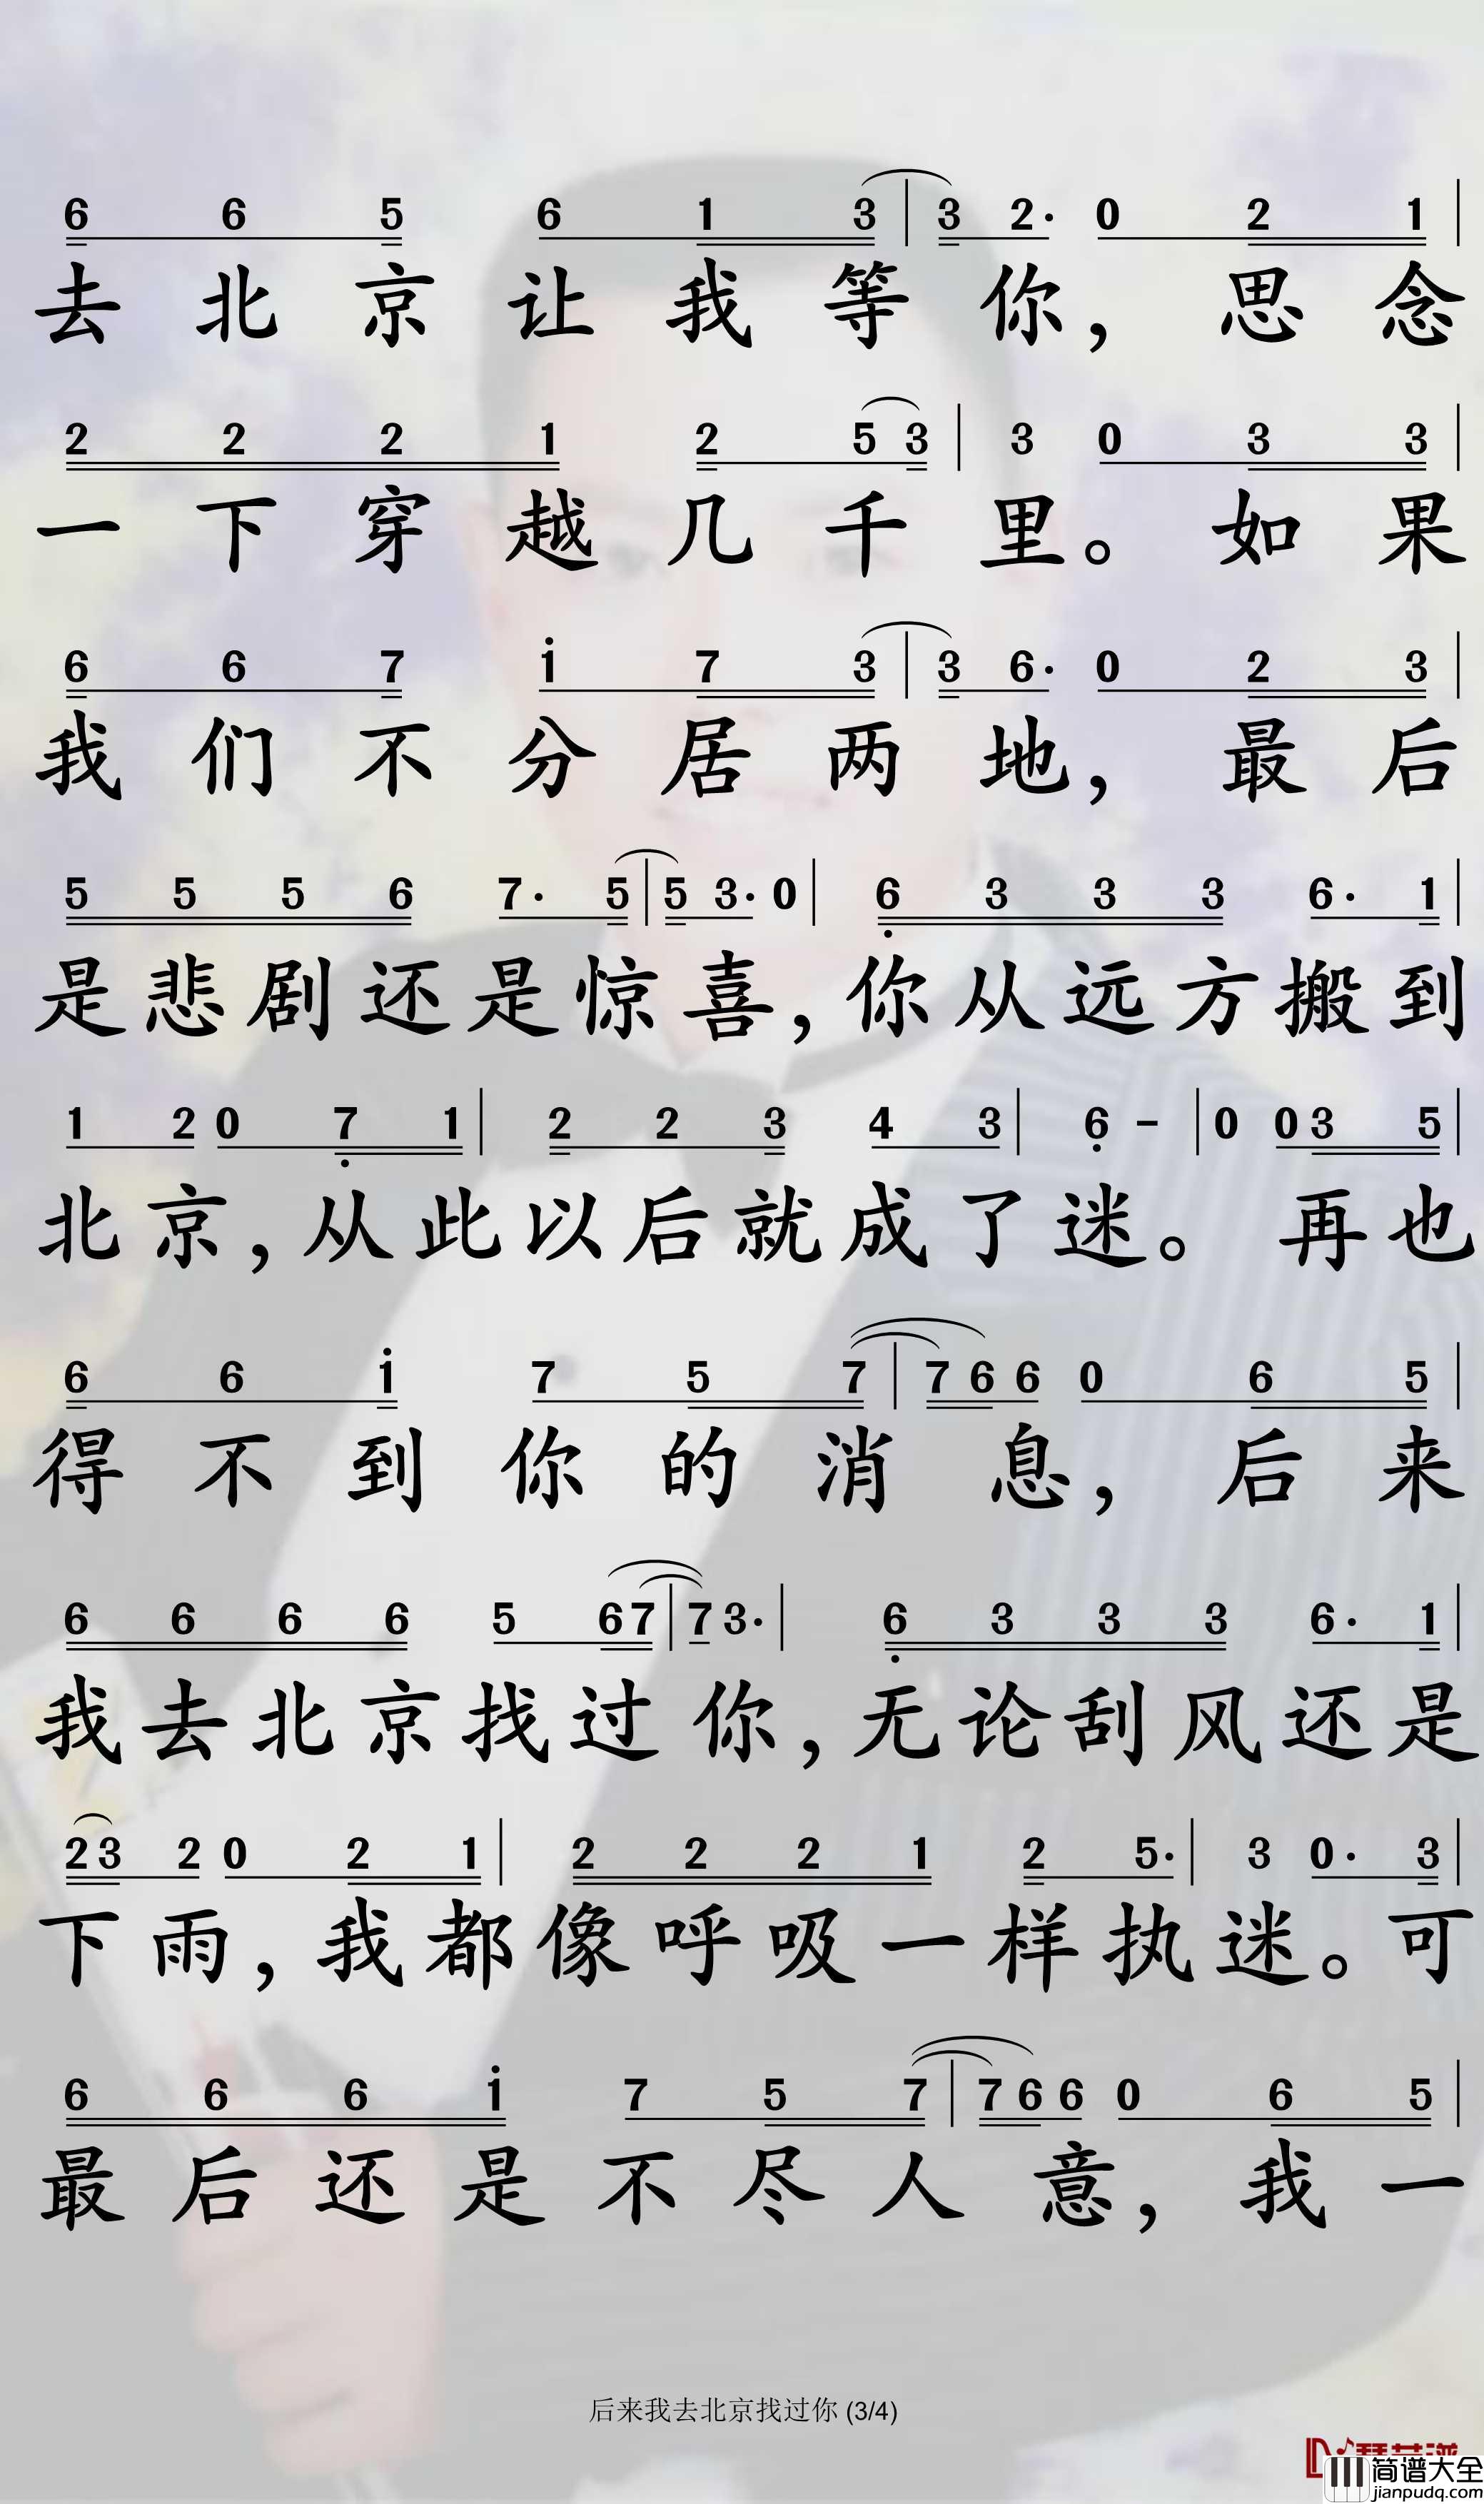 6 6 5 6 1 3 | 3 2· 0 2 1 |
去北京让我等你，思念
2 2 2 1 2 5 3 | 3 0 3 3 |
一下穿越几千里。如果
6 6 7 i 7 3 | 3 6· 0 2 3 |
我们不分居两地，最后
5 5 5 6 7· 5 | 5 3· 0 | 6 3 3 3 6· 1 |
是悲剧还是惊喜，你从远方搬到
1 2 0 7 1 | 2 2 3 4 3 | 6 - | 0 0 3 5 |
北京，从此以后就成了迷。再也
6 6 i 7 5 7 | 7 6 6 0 6 5 |
得不到你的消息，后来
6 6 6 6 5 6 7 | 7 3· | 6 3 3 3 6· 1 |
我去北京找过你，无论刮风还是
2 3 2 0 2 1 | 2 2 2 1 2 5· | 3 0· 3 |
下雨，我都像呼吸一样执迷。可
6 6 6 i 7 5 7 | 7 6 6 0 6 5 |
最后还是不尽人意，我一
后来我去北京找过你 (3/4)
简谱大全
jianpudq.com